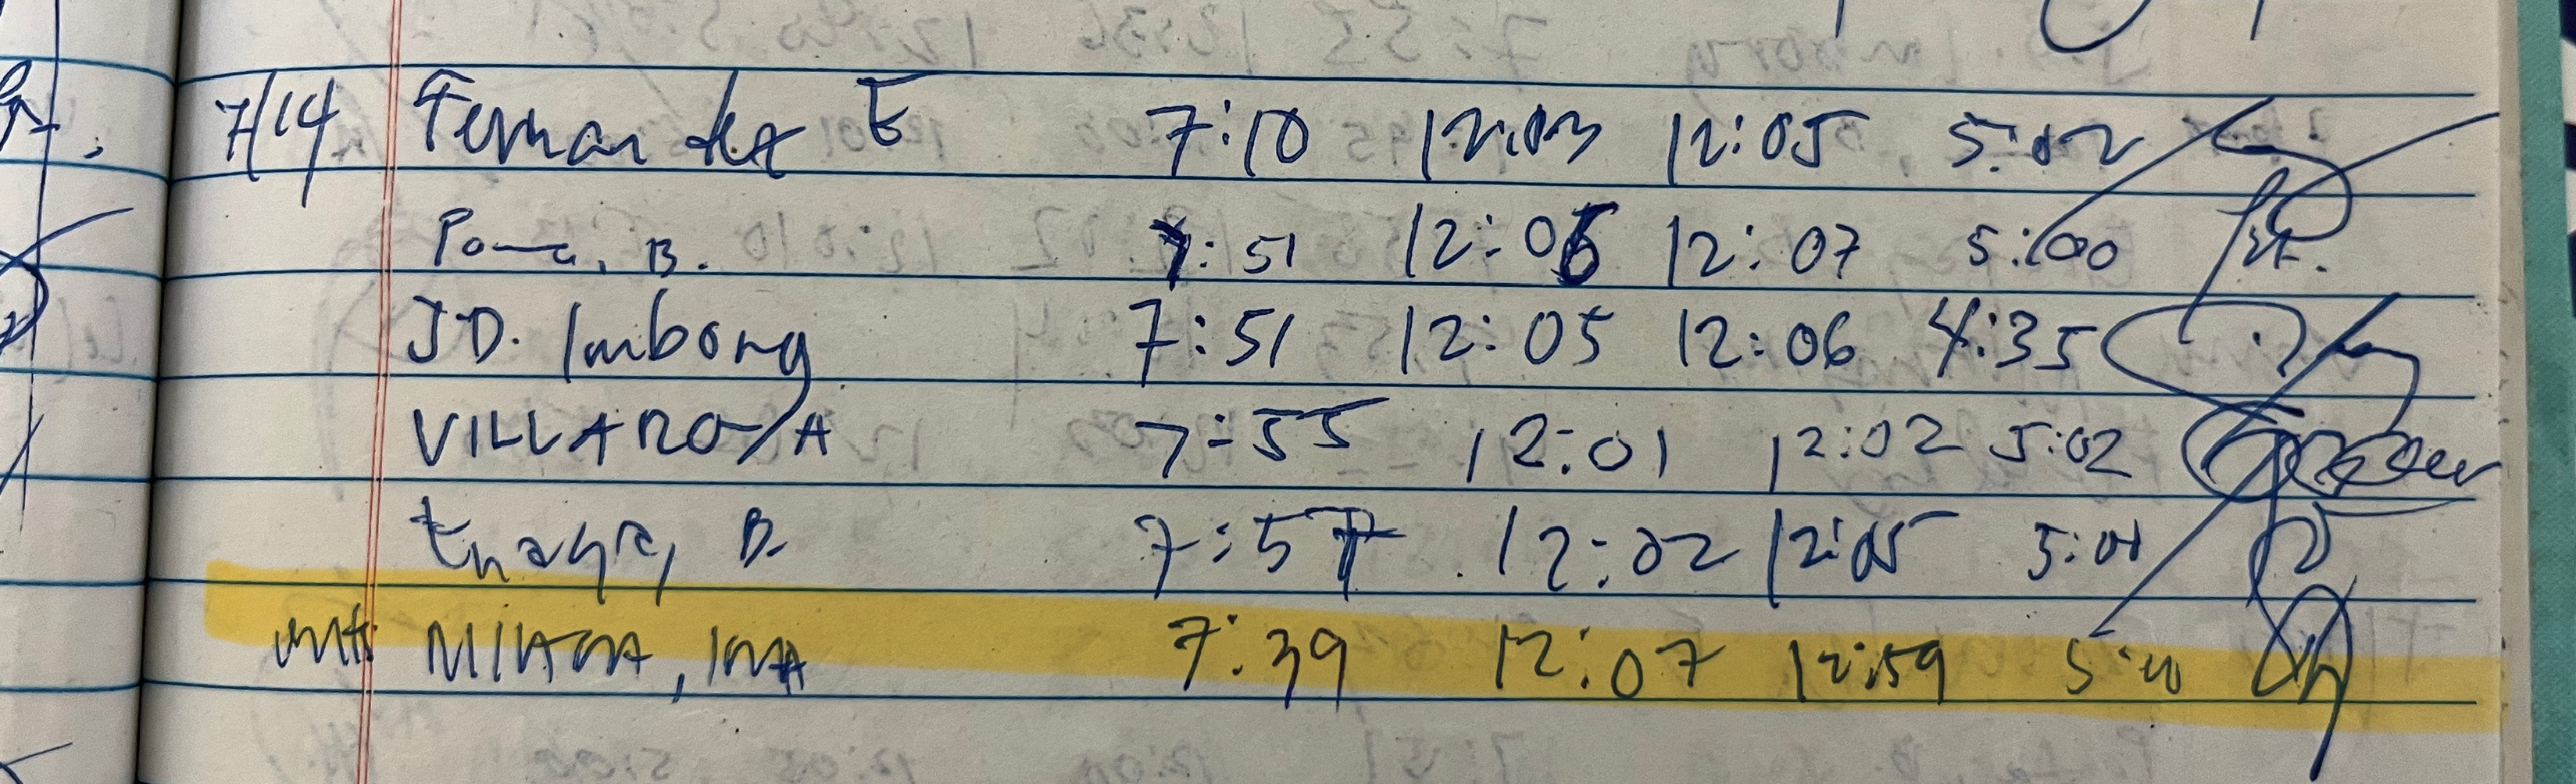 7/14 Fernandez E 7:10 12:03 12:05 5:02
B. 7:51 12:06 12:07 5:00
JD. Imbong 7:51 12:05 12:06 4:35
VILLAROYA 7:55 12:01 12:02 5:02
B. 7:57 12:02 12:05 5:01
7:39 12:07 12:59